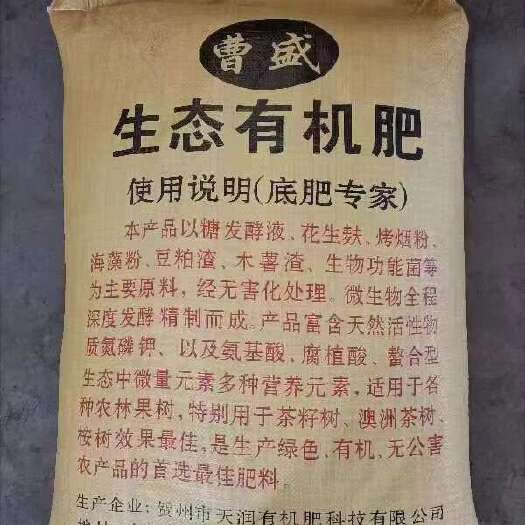 曹盛
生态有机肥
使用说明(底肥专家)
本产品以糖发酵液、花生麸、烤烟粉、
海藻粉、豆粕渣、木薯渣、生物功能菌等
为主要原料，经无害化处理。微生物全程
深度发酵精制而成。产品富含天然活性物
质氮磷钾、以及氨基酸、腐植酸、螯合型
生态中微量元素多种营养元素，适用于各
种农林果树，特别用于茶籽树、澳洲茶树、
桉树效果最佳，是生产绿色、有机、无公害
农产品的首选最佳肥料。
生产企业：贺州市天润有机肥科技有限公司